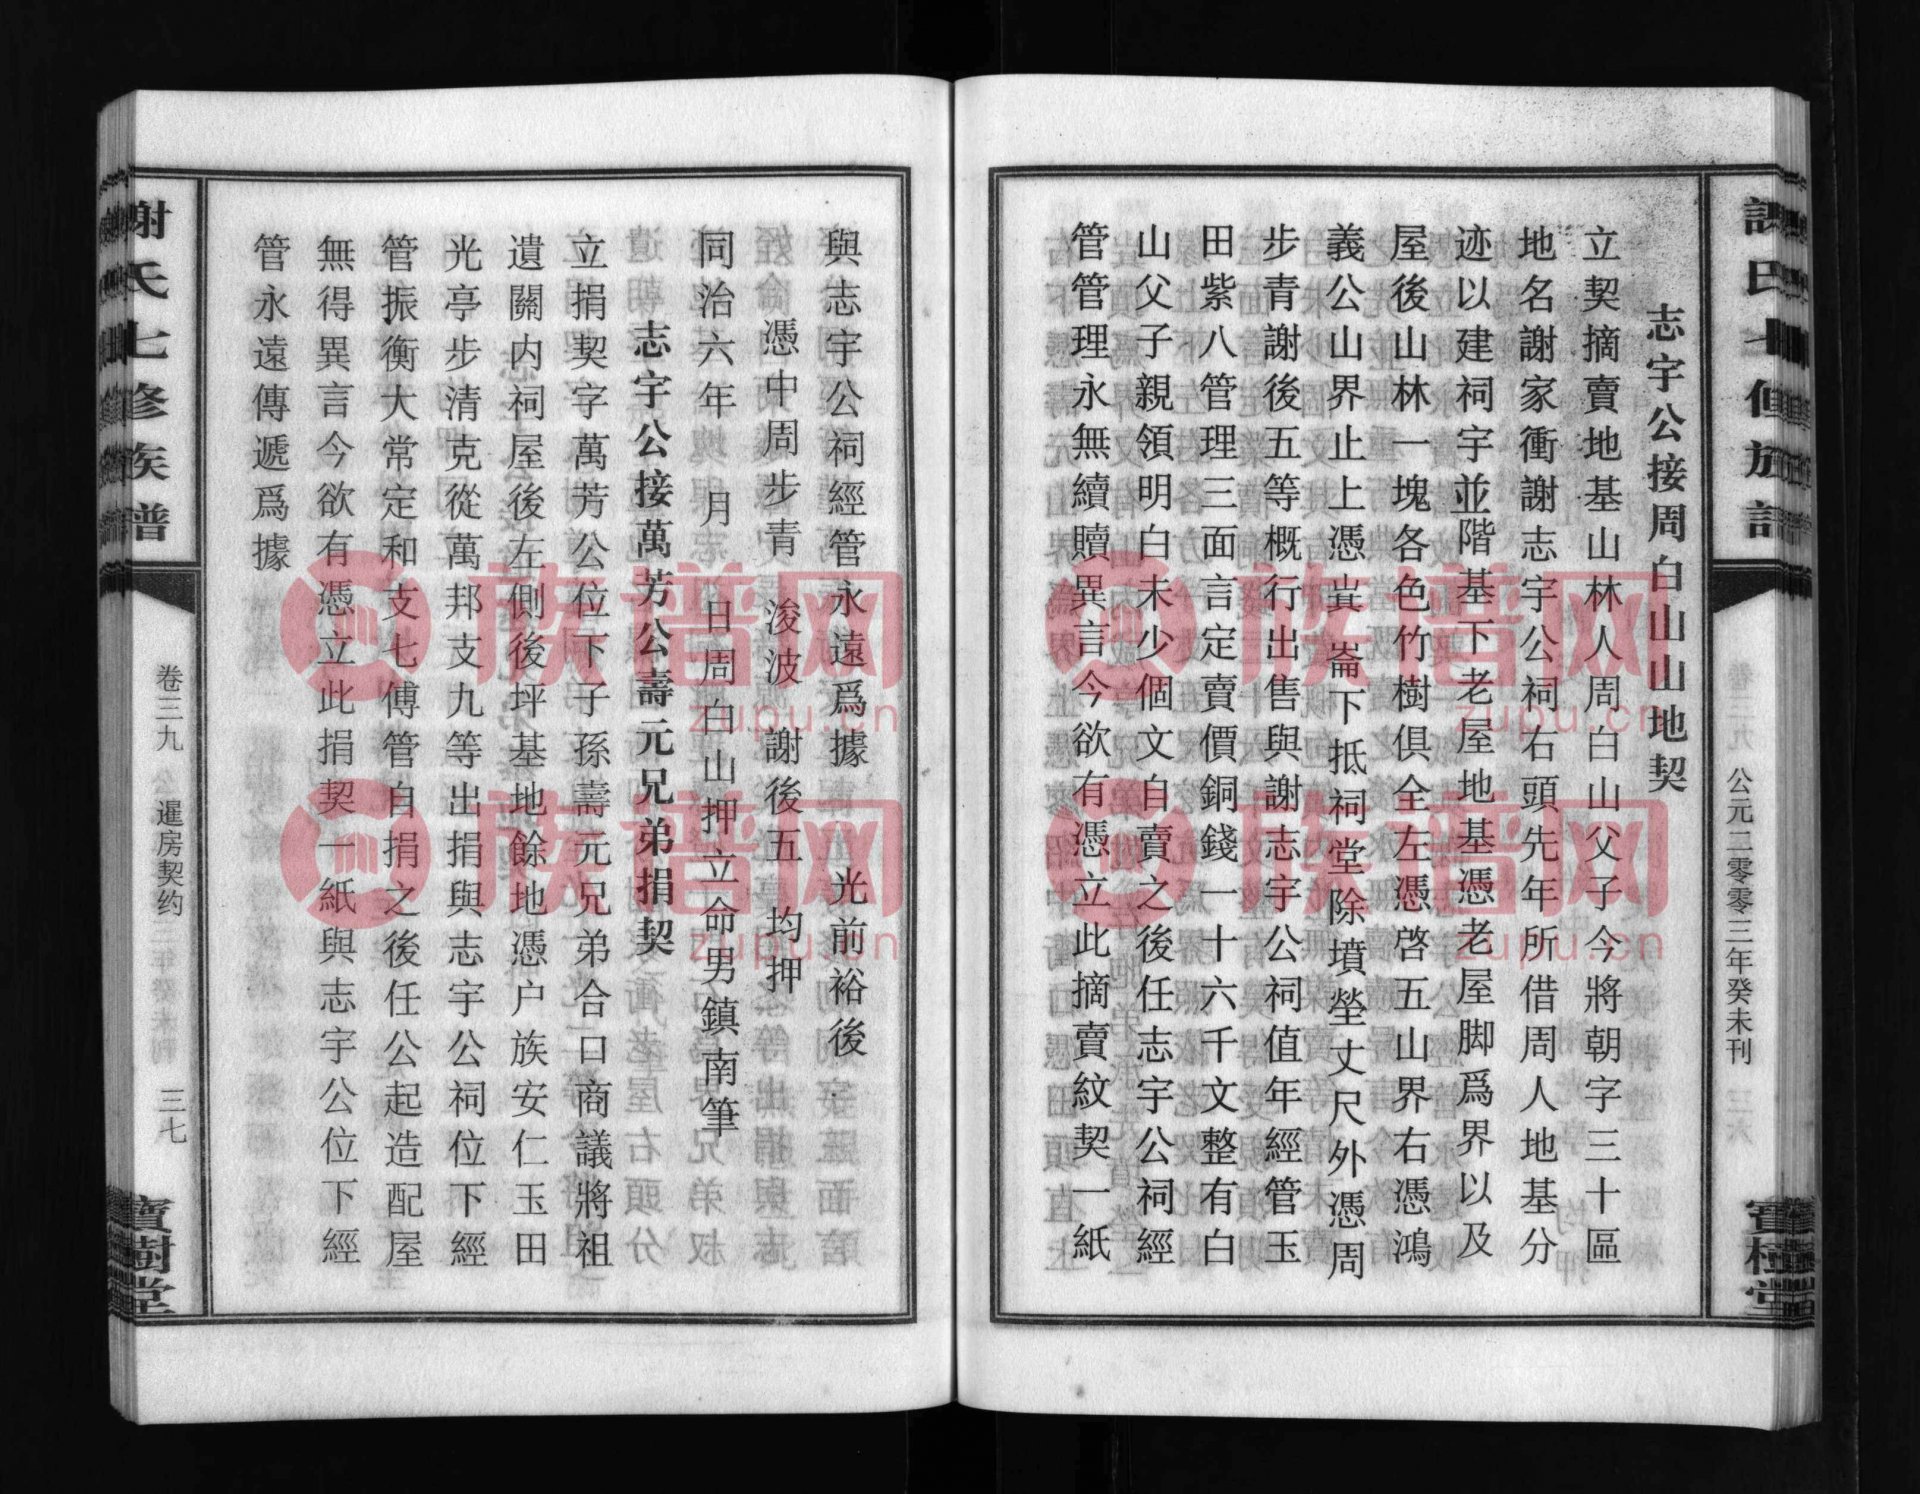 志宇公接周白山山地契
立契摘賣地基山林人周白山父子今將朝字三十區
地名謝家衝謝志宇公祠右頭先年所借周人地基分
迹以建祠宇並階基下老屋地基憑老屋脚爲界以及
屋後山林一塊各色竹樹俱全左憑啓五山界右憑鴻
義公山界止上憑㞷崙下抵祠堂除墳塋丈尺外憑周
步青謝後五等概行出售與謝志宇公祠值年經管玉
田紫八管理三面言定賣價銅錢一十六千文整有白
山父子親領明白未少個文自賣之後任志宇公祠經
管管理永無續贖異言今欲有憑立此摘賣紋契一紙
公元二零零三年癸未刊
與志宇公祠經管永遠爲據 光前裕後
憑中周步青 浚波 謝後五 均押
同治六年 月 日周白山押立命男鎮南筆
志宇公接萬芳公壽元兄弟捐契
立捐契字萬芳公位下子孫壽元兄弟合口商議將祖
遺關内祠屋後左側後坪基地餘地憑户族安仁玉田
光亭步清克從萬邦支九等出捐與志宇公祠位下經
管振衡大常定和支七傅管自捐之後任公起造配屋
無得異言今欲有憑立此捐契一紙與志宇公位下經
管永遠傳遞爲據
謝氏七修族譜
卷三九
暹房契约
三七
寶樹堂
族谱网
zupu.cn
族谱网
zupu.cn
族谱网
zupu.cn
族谱网
zupu.cn